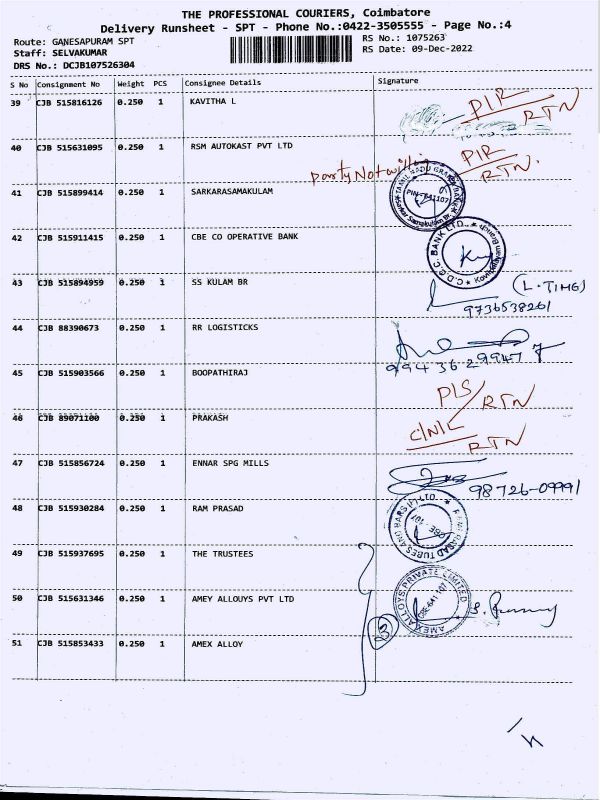 THE PROFESSIONAL COURIERS, Coimbatore
Delivery Runsheet - SPT - Phone No.:0422-3505555 - Page No.:4
Route: GANESAPURAM SPT
RS No.: 1075263
Staff: SELVAKUMAR
RS Date: 09-Dec-2022
DRS No.: DCJB107526304
S No Consignment No Weight PCS Consignee Details Signature
39 CJB 515816126 0.250 1 KAVITHA L
P/R
RTN
40 CJB 515631095 0.250 1 RSM AUTOKAST PVT LTD
P/R
party Not willing RTN.
41 CJB 515899414 0.250 1 SARKARASAMAKULAM
PIN-641107
42 CJB 515911415 0.250 1 CBE CO OPERATIVE BANK
C.D.C.C. BANK LTD.
43 CJB 515894959 0.250 1 SS KULAM BR
9736538261
44 CJB 88390673 0.250 1 RR LOGISTICKS
9943629947
45 CJB 515903566 0.250 1 BOOPATHIRAJ
RTN
46 CJB 89071100 0.250 1 PRAKASH
RTN
47 CJB 515856724 0.250 1 ENNAR SPG MILLS
98726-09991
48 CJB 515930284 0.250 1 RAM PRASAD
TUBES AND BARS (P) LTD.
CBE - 107
49 CJB 515937695 0.250 1 THE TRUSTEES
50 CJB 515631346 0.250 1 AMEY ALLOUYS PVT LTD
AMEX ALLOYS PRIVATE LIMITED
CBE-641 107
3
51 CJB 515853433 0.250 1 AMEX ALLOY